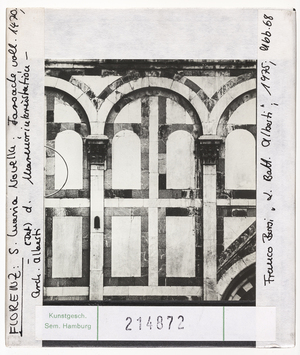 FIORENZ: S. Maria Novella: Fassade, voll. 1470,
(Det) d. Marmorinkrustation –
Arch. Alberti
Franco Borsi, "L. Batt. Alberti", 1975, Abb. 68
Kunstgesch.
Sem. Hamburg
214872